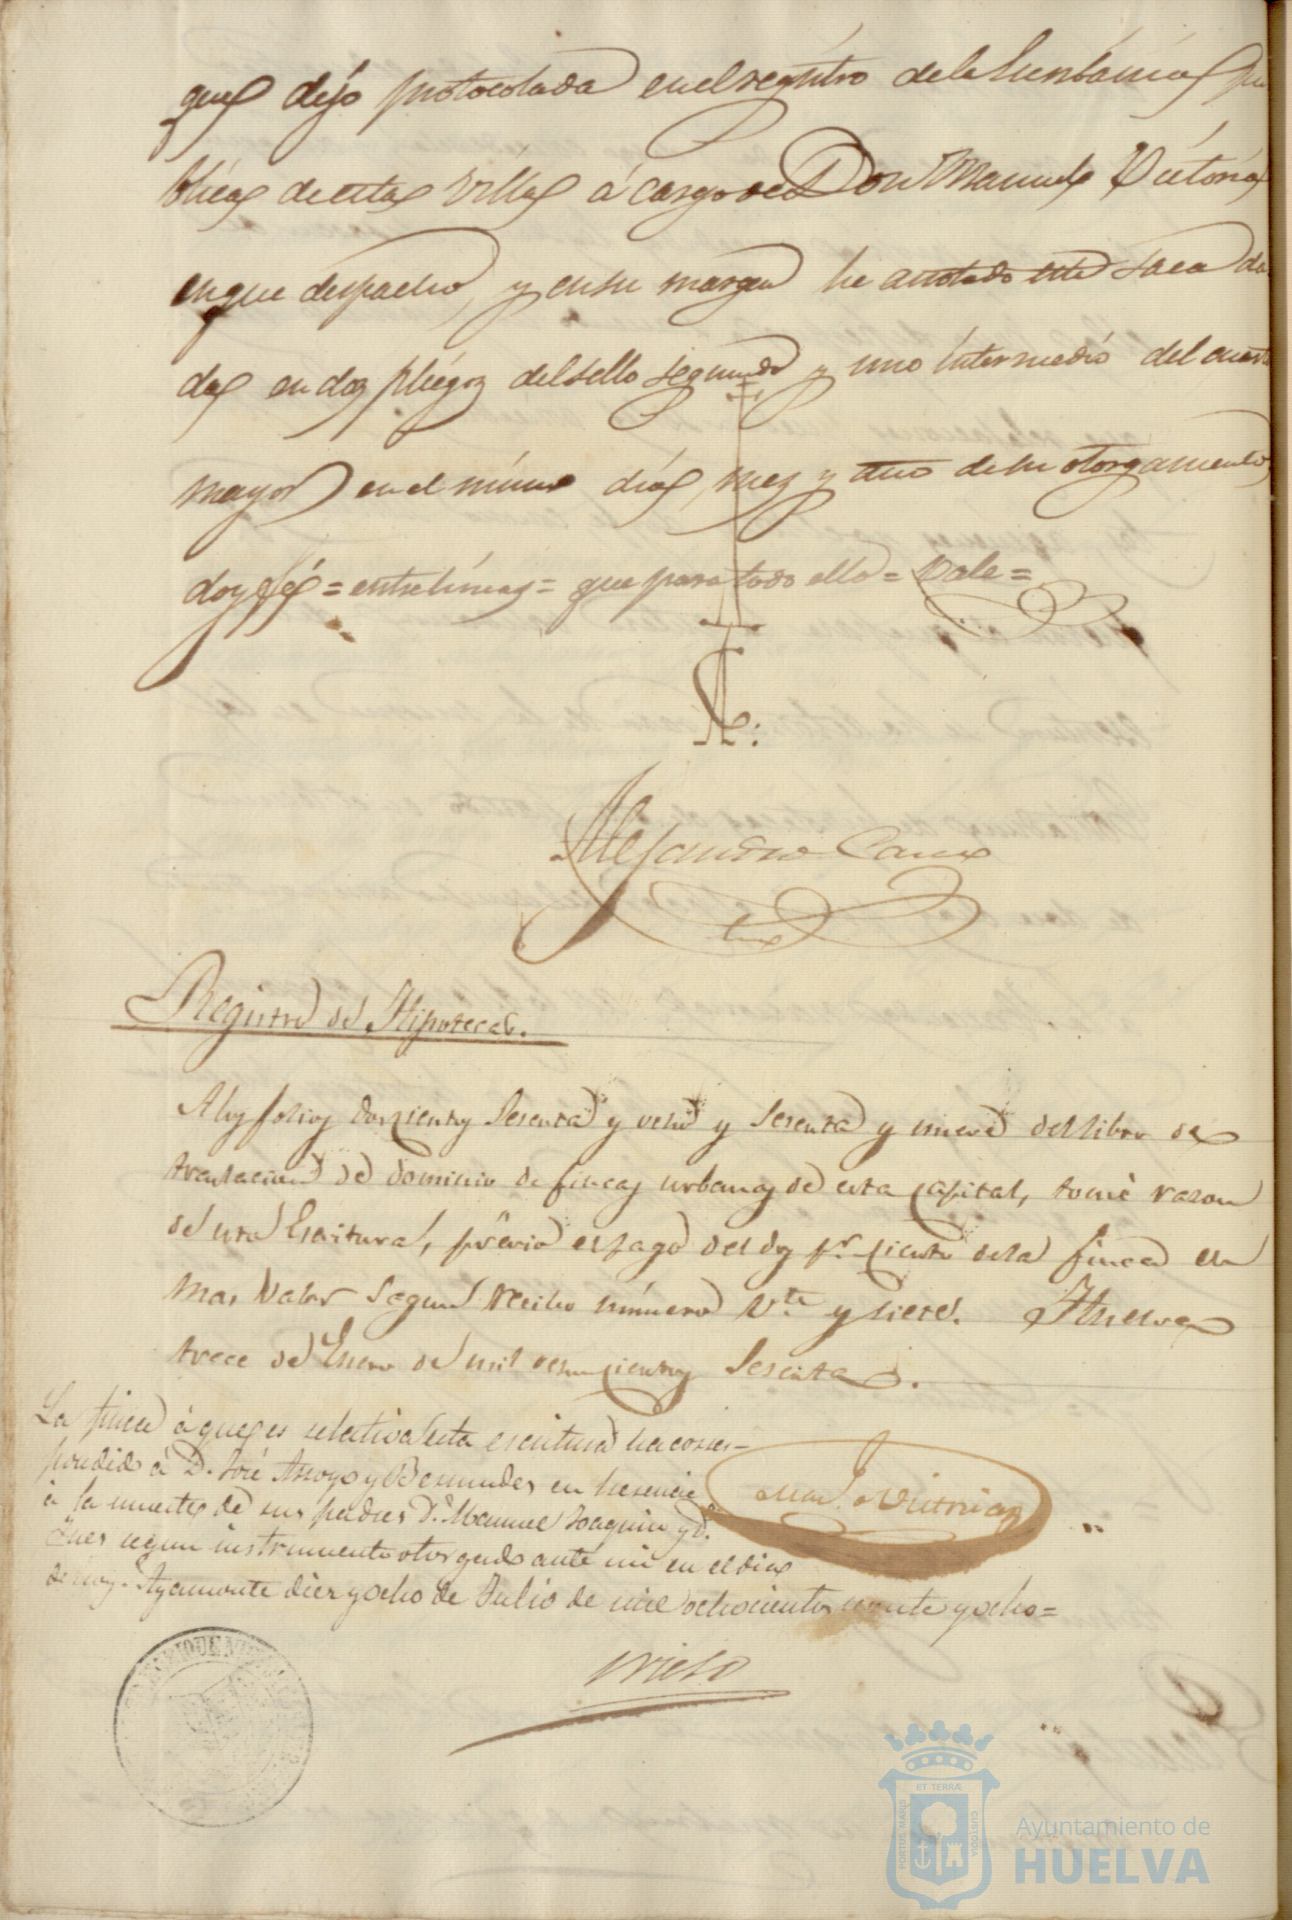 que dejo protocolada en el registro de la Escribania pu
blica de esta Villa á cargo de Don Manuel Victoria
en que despacho, y en su margen he anotado esta saca da
da en dos pliegos del sello segundo y uno intermedio del cuarto
mayor en el mismo dia, mes y año de su otorgamiento
doy fé = entrelineas = que para todo ello = Vale =
Alejandro
Registro de Hipotecas.
A los folios doscientos sesenta y ocho y sesenta y nueve del libro de
traslacion de dominio de fincas urbanas de esta capital, tomé razon
de esta Escritura, previo el pago del dos pr. ciento de la finca de
mas valor segun recibo número Vte. y siete. Huelva
trece de Enero de mil ochocientos sesenta.
La finca á que es relativa esta escritura ha corres-
pondido á D. José Arroyo y Bermudez en herencia
á la muerte de sus padres D. Manuel Joaquin y D.ª
Ynes segun instrumento otorgado ante mi en el dia
de hoy. Ayamonte diez y ocho de Julio de mil ochocientos y ocho =
Man. Victoria
Prieto
ET TERRÆ
PORTUS MARIS
CUSTODIA
Ayuntamiento de
HUELVA